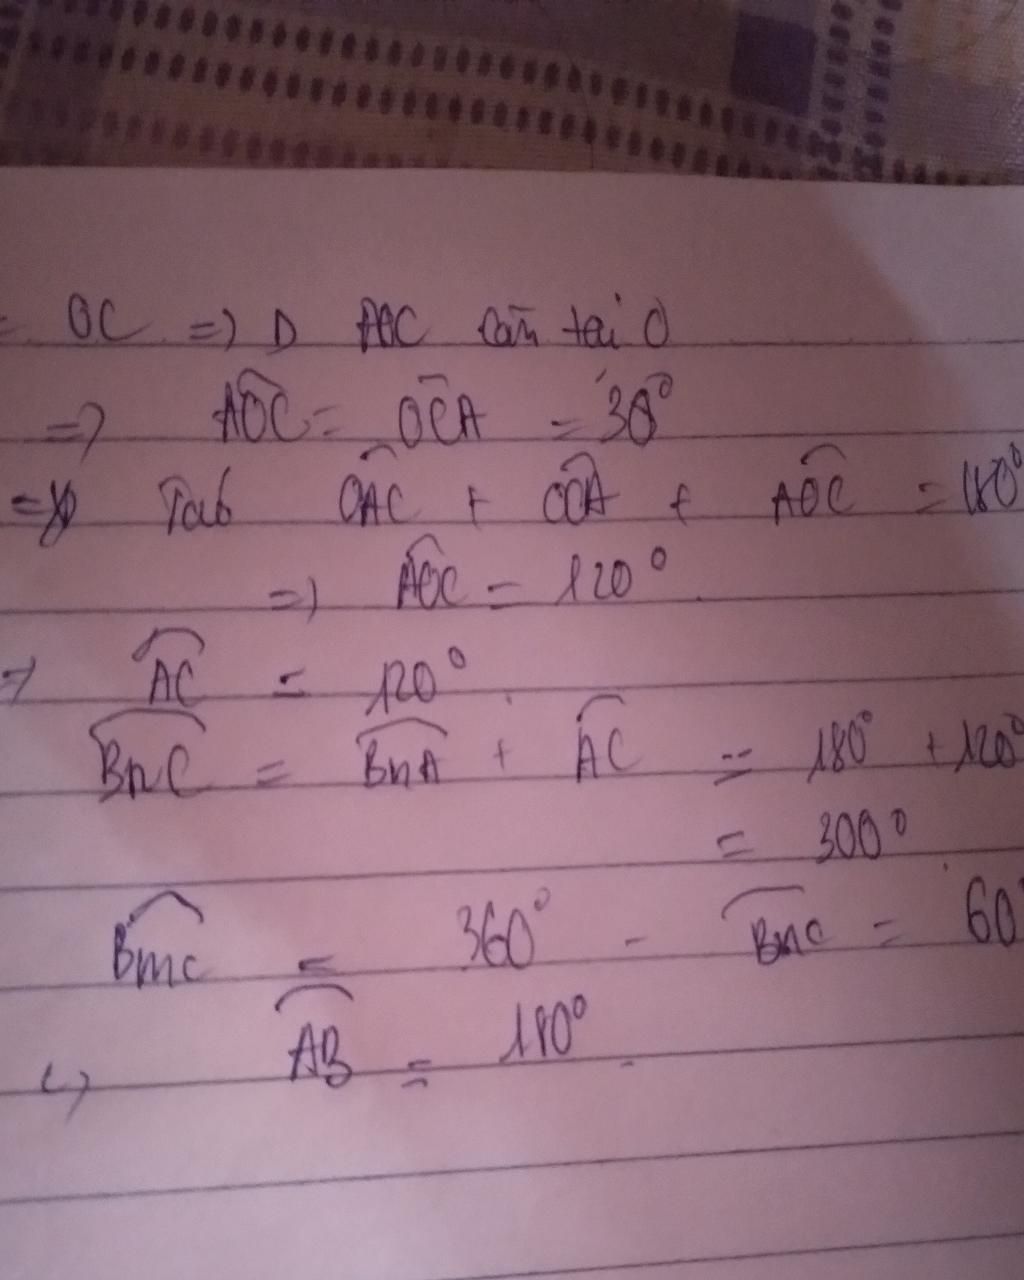 = OC => Δ AOC cân tại O
=> AOC = OCA = 30°
=> Ta có OAC + OCA + AOC = 180°
=> AOC = 120°
=> AC = 120°
BnC = BnA + AC = 180° + 120°
= 300°
BmC = 360° - BnC = 60°
AB = 180°